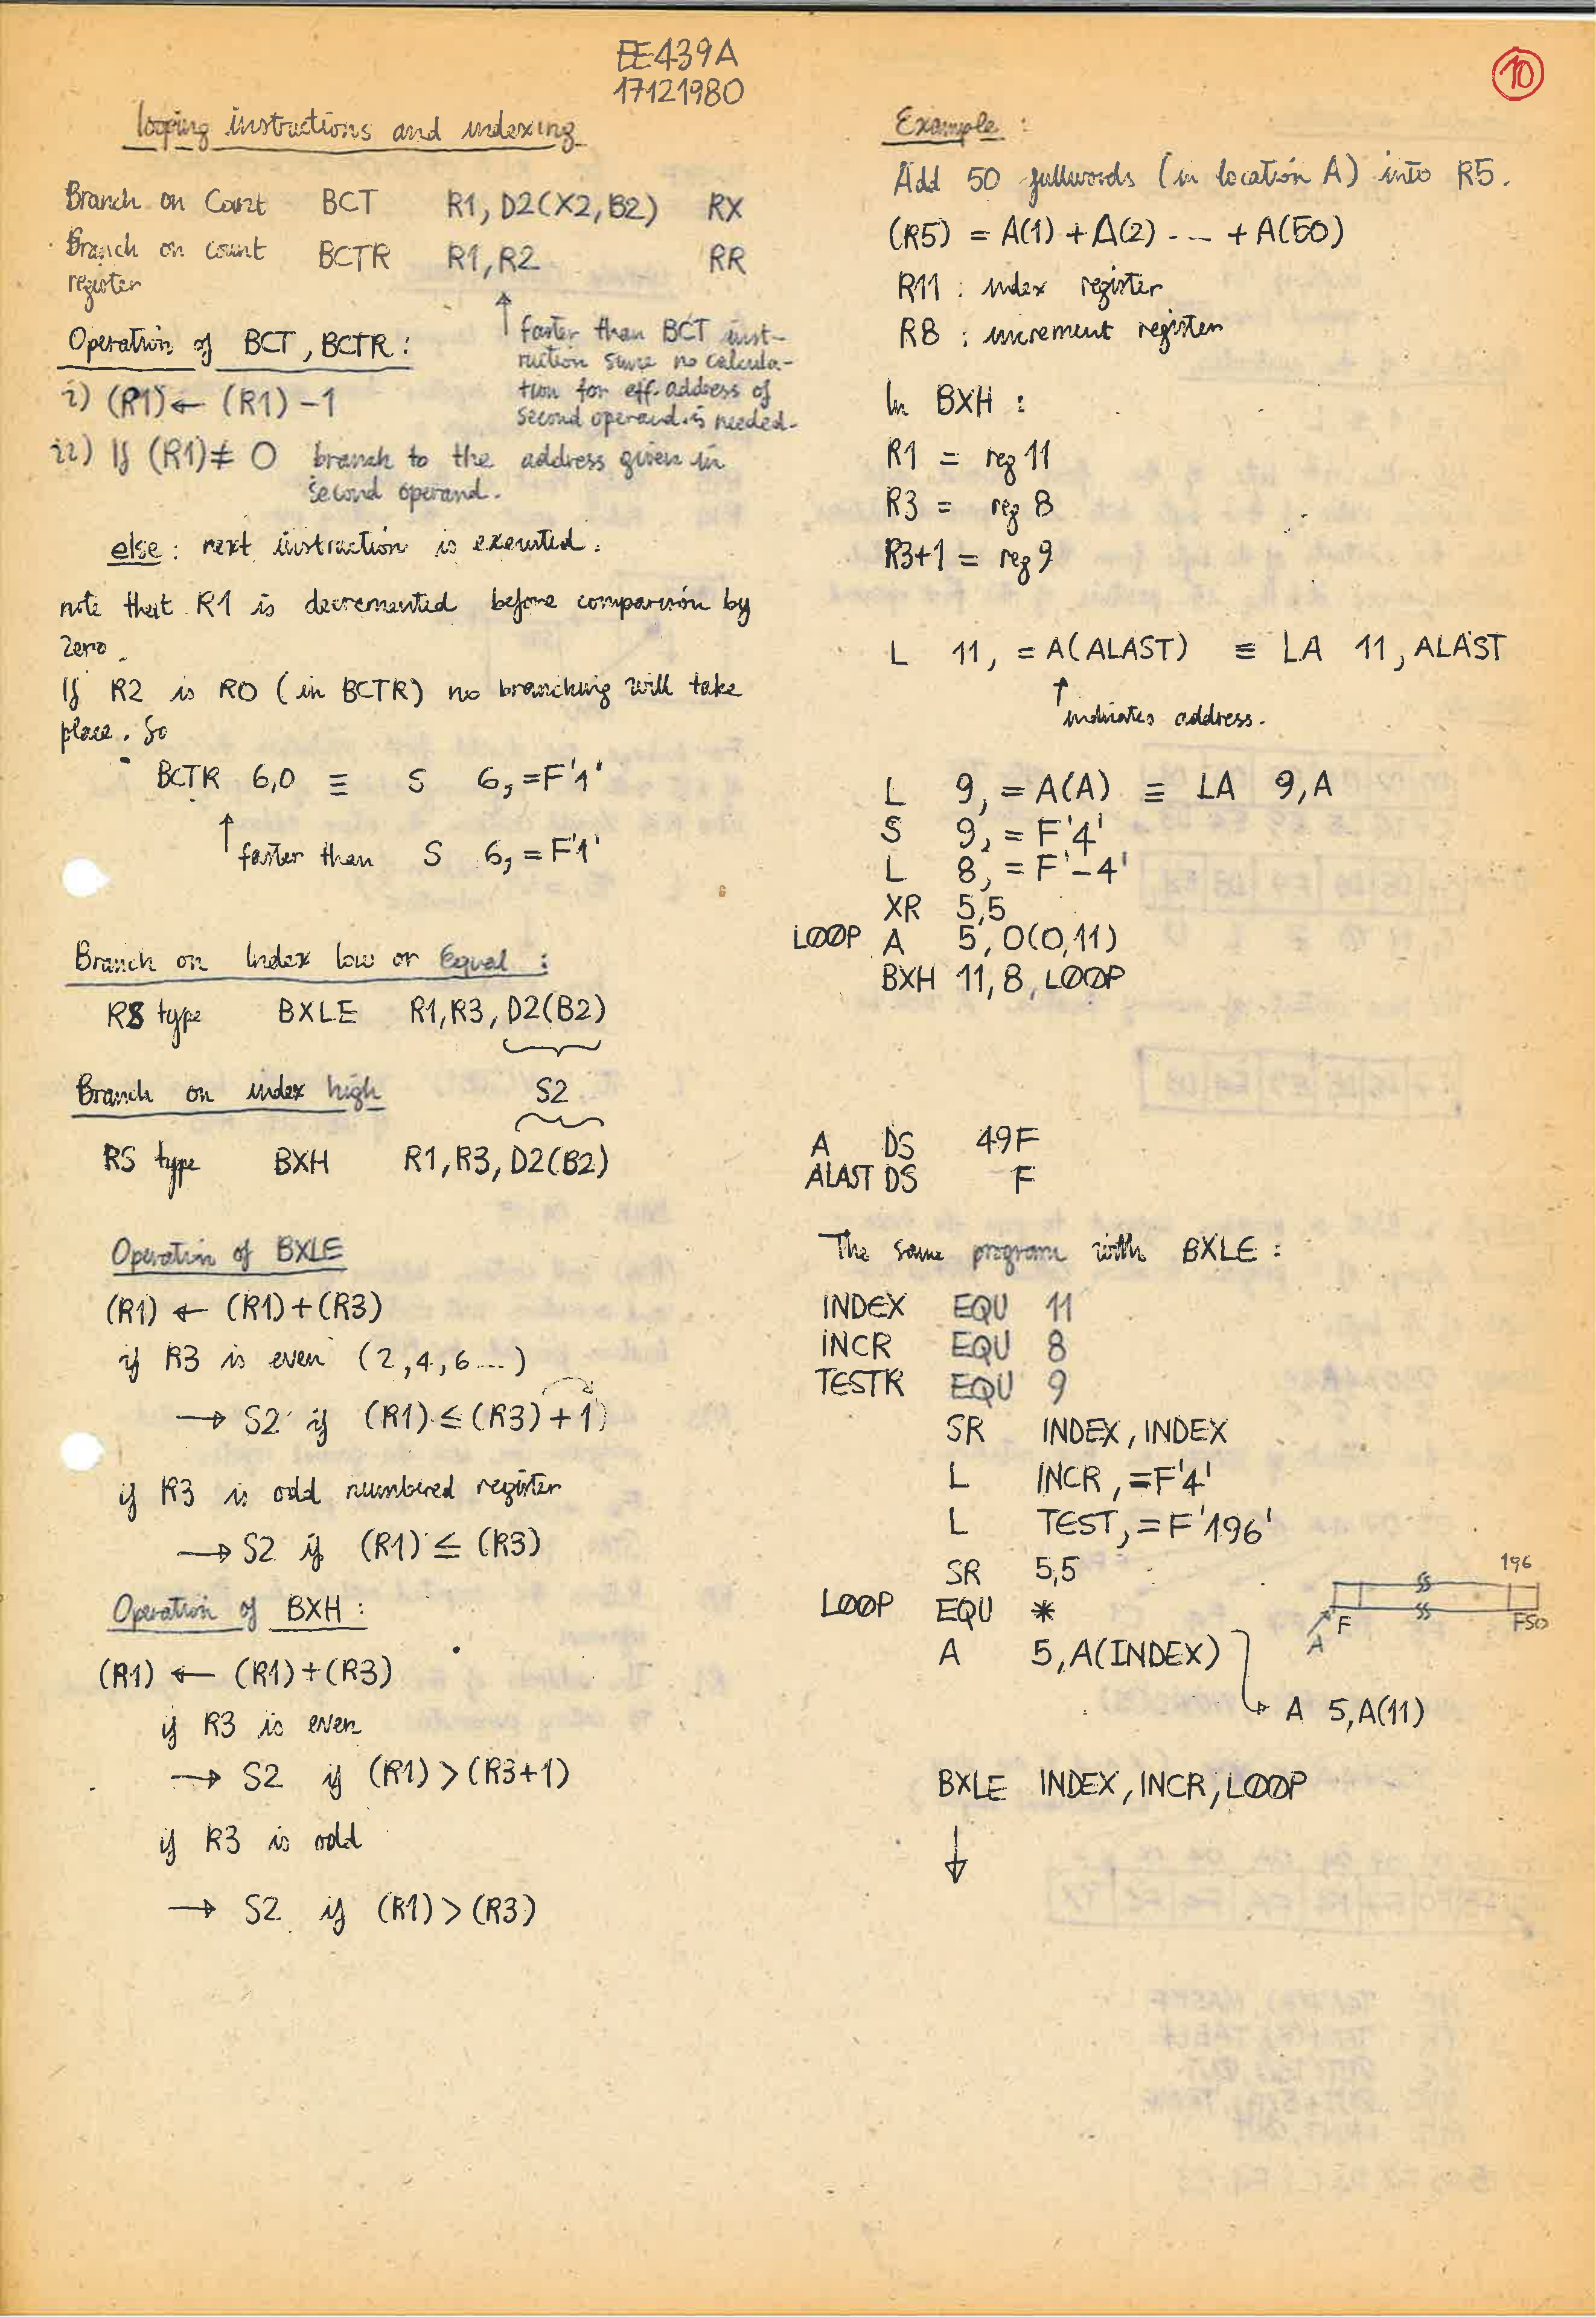 EE439A
17121980
10
looping instructions and indexing
Branch on Count BCT R1, D2(X2, B2) RX
Branch on count BCTR R1, R2 RR
register
↑ faster than BCT inst-
ruction since no calcula-
tion for eff. address of
second operand is needed.
Operation of BCT, BCTR:
i) (R1) ← (R1) -1
ii) If (R1) ≠ 0 branch to the address given in
second operand.
else: next instruction is executed.
note that R1 is decremented before comparision by
zero.
If R2 is R0 (in BCTR) no branching will take
place. So
BCTR 6,0 ≡ S 6,=F'1'
↑ faster than S 6,=F'1'
Branch on Index low or Equal :
RS type BXLE R1, R3, D2(B2)
Branch on index high S2
RS type BXH R1, R3, D2(B2)
Operation of BXLE
(R1) ← (R1)+(R3)
if R3 is even (2,4,6...)
→ S2 if (R1) ≤ (R3)+1)
if R3 is odd numbered register
→ S2 if (R1) ≤ (R3)
Operation of BXH :
(R1) ← (R1)+(R3)
if R3 is even
→ S2 if (R1) > (R3+1)
if R3 is odd
→ S2 if (R1) > (R3)
Example :
Add 50 fullwords (in location A) into R5.
(R5) = A(1) + A(2) - -- + A(50)
R11 : index register
R8 : increment register
In BXH :
R1 = reg 11
R3 = reg 8
R3+1 = reg 9
L 11, = A(ALAST) ≡ LA 11, ALAST
↑ indicates address.
L 9, = A(A) ≡ LA 9, A
S 9, = F'4'
L 8, = F'-4'
XR 5,5
LOOP A 5, 0(0,11)
BXH 11, 8, LOOP
A DS 49F
ALAST DS F
The same program with BXLE :
INDEX EQU 11
INCR EQU 8
TESTR EQU 9
SR INDEX, INDEX
L INCR, =F'4'
L TEST, =F'196'
SR 5,5
LOOP EQU *
A 5, A(INDEX)
→ A 5, A(11)
BXLE INDEX, INCR, LOOP
↓
196
F F50
A